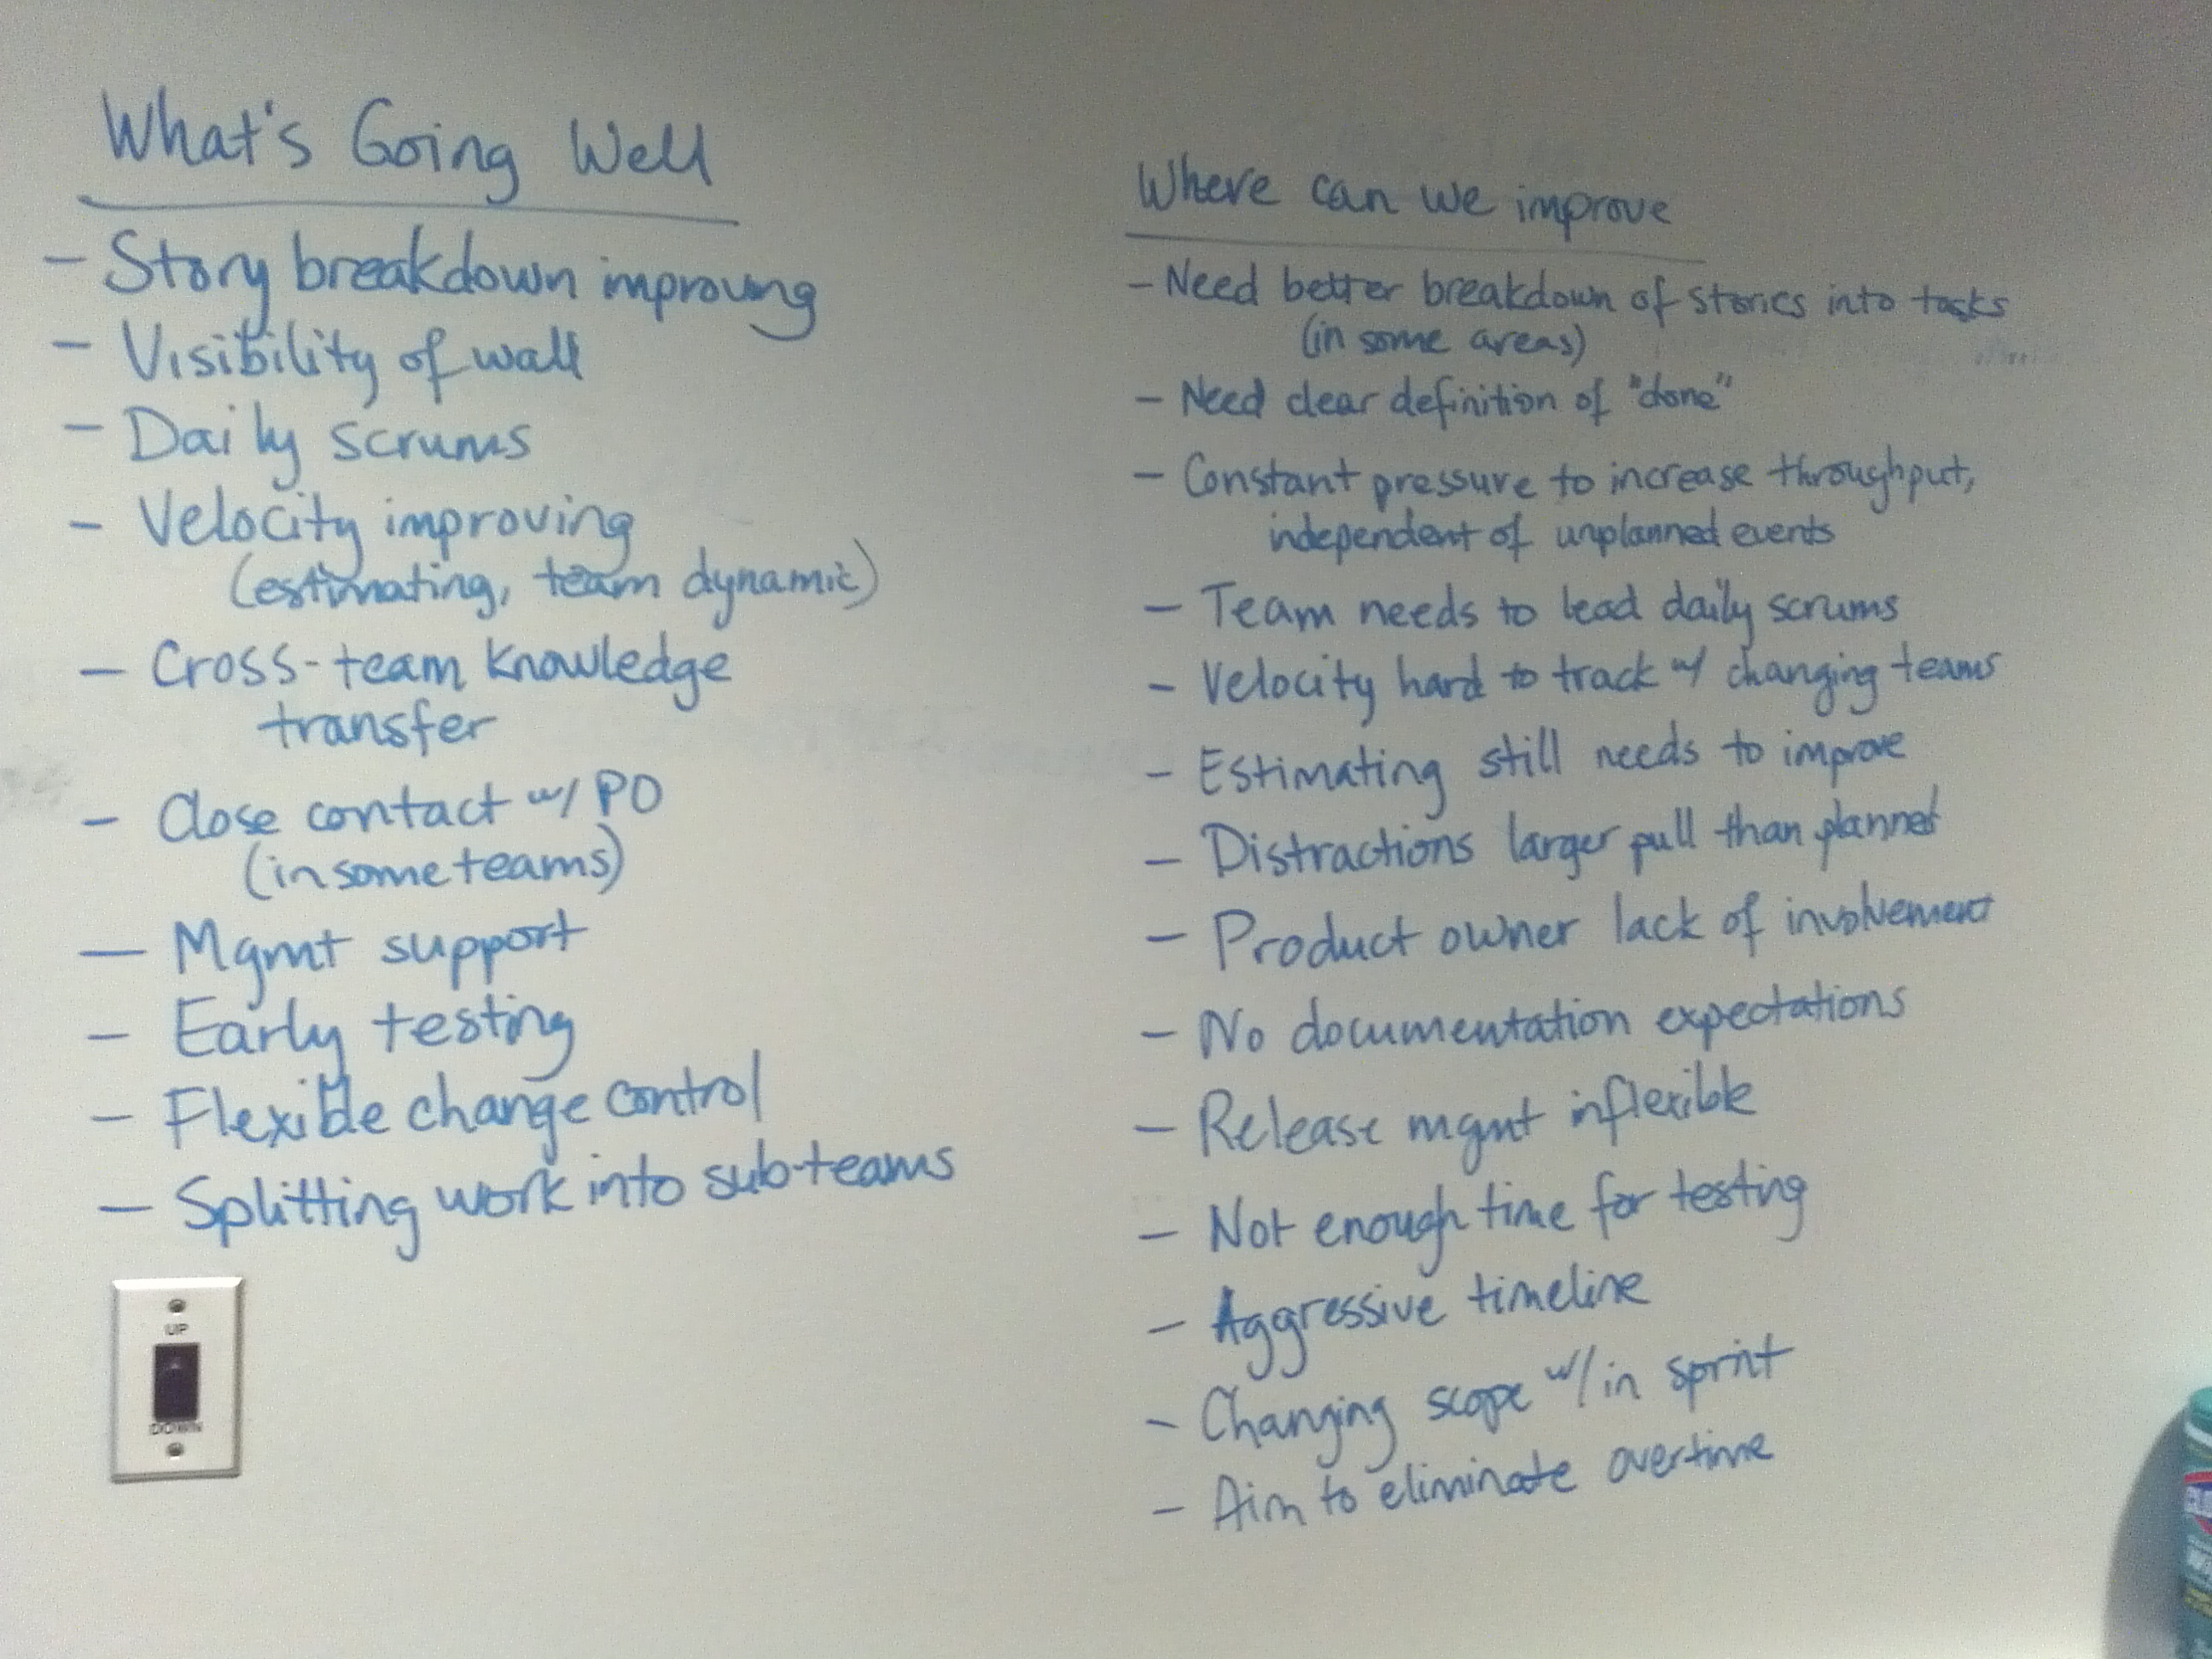 What's Going Well
- Story breakdown improving
- Visibility of wall
- Daily scrums
- Velocity improving
(estimating, team dynamic)
- Cross-team knowledge
transfer
- Close contact w/ PO
(in some teams)
- Mgmt support
- Early testing
- Flexible change control
- Splitting work into sub-teams
UP
DOWN
Where can we improve
- Need better breakdown of stories into tasks
(in some areas)
- Need clear definition of "done"
- Constant pressure to increase throughput,
independent of unplanned events
- Team needs to lead daily scrums
- Velocity hard to track w/ changing teams
- Estimating still needs to improve
- Distractions larger pull than planned
- Product owner lack of involvement
- No documentation expectations
- Release mgmt inflexible
- Not enough time for testing
- Aggressive timeline
- Changing scope w/in sprint
- Aim to eliminate overtime